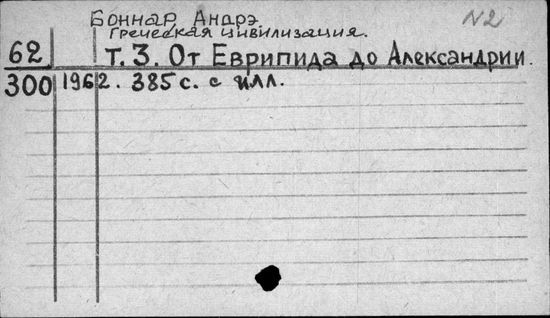 Боннар, Андрэ. N2
Греческая цивилизация.
62 Т. 3. От Еврипида до Александрии.
300 1962. 385 с. с илл.